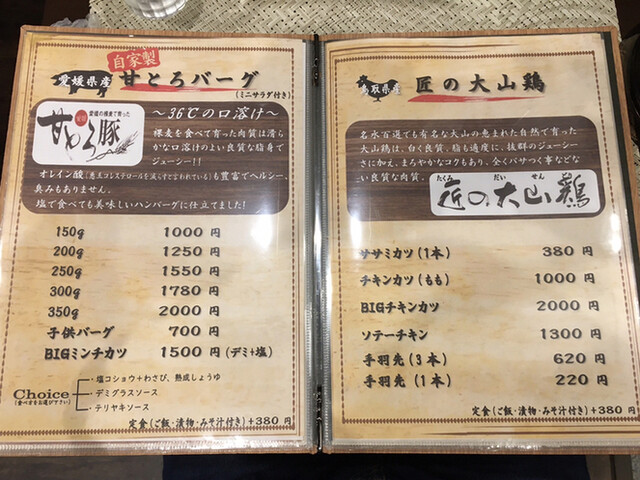 自家製
愛媛県産 甘とろバーグ
(ミニサラダ付き)
愛媛の裸麦で育った
甘とろ豚
～36℃の口溶け～
裸麦を食べて育った肉質は滑ら
かな口溶けのよい良質な脂身で
ジューシー!!
オレイン酸(悪玉コレステロールを減らすて言われている)も豊富でヘルシー、
臭みもありません。
塩で食べても美味しいハンバーグに仕立てました!
150g 1000 円
200g 1250 円
250g 1550 円
300g 1780 円
350g 2000 円
子供バーグ 700 円
BIGミンチカツ 1500 円 (デミ+塩)
Choice
(食べ方をお選び下さい)
・塩コショウ+わさび、熟成しょうゆ
・デミグラスソース
・テリヤキソース
定食(ご飯・漬物・みそ汁付き)+380 円
鳥取県産 匠の大山鶏
名水百選でも有名な大山の恵まれた自然で育った
大山鶏は、白く良質、脂も適度に、抜群のジューシー
さに加え、まろやかなコクもあり、全くパサつく事などな
い良質な肉質。
たくみ だい せん
匠の大山鶏
ササミカツ(1本) 380 円
チキンカツ(もも) 1000 円
BIGチキンカツ 2000 円
ソテーチキン 1300 円
手羽先(3本) 620 円
手羽先(1本) 220 円
定食(ご飯・漬物・みそ汁付き)+380 円